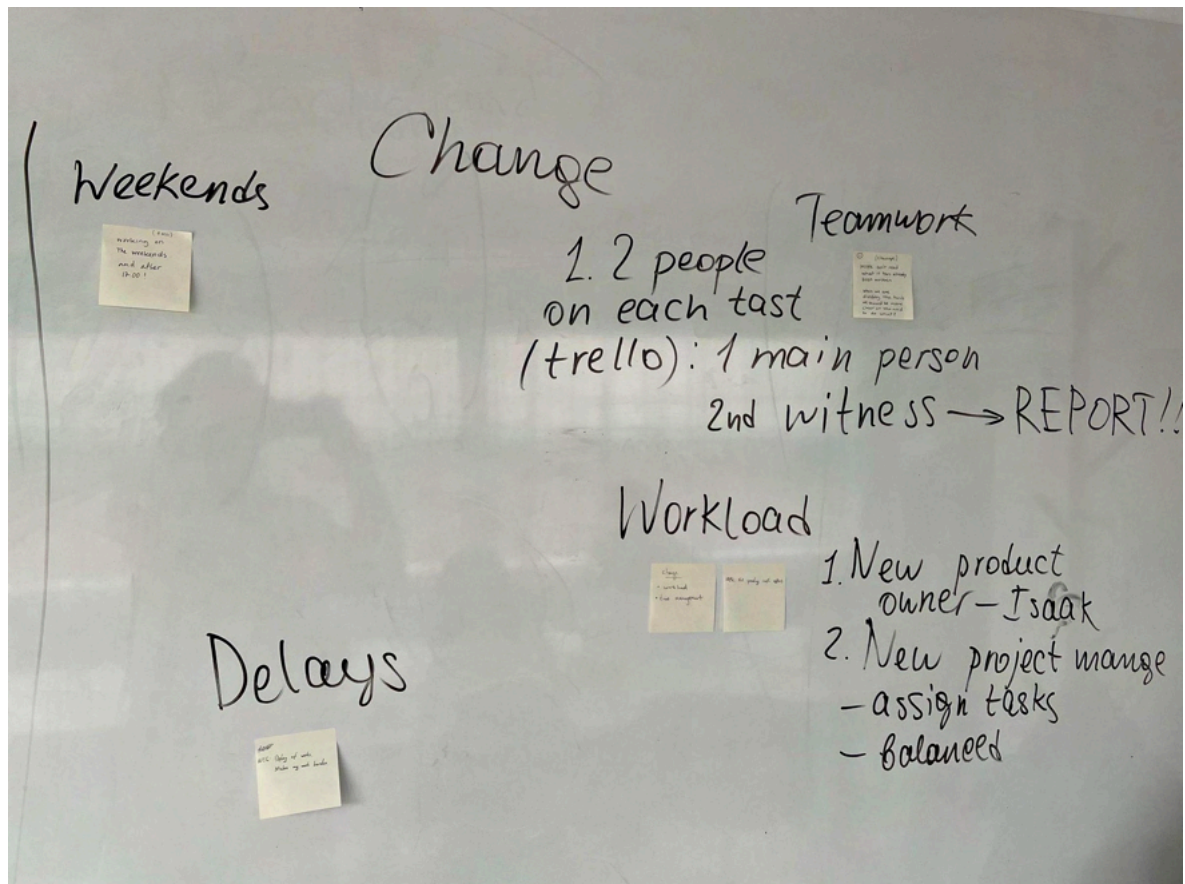 Change
Weekends
working on
the weekends
and after
Teamwork
1. 2 people
on each tast
(trello): 1 main person
2nd witness → REPORT!!
Workload
Change
- workload
- time management
1. New product
owner – Isaak
2. New project mange
- assign tasks
- balanced
Delays
Delay of